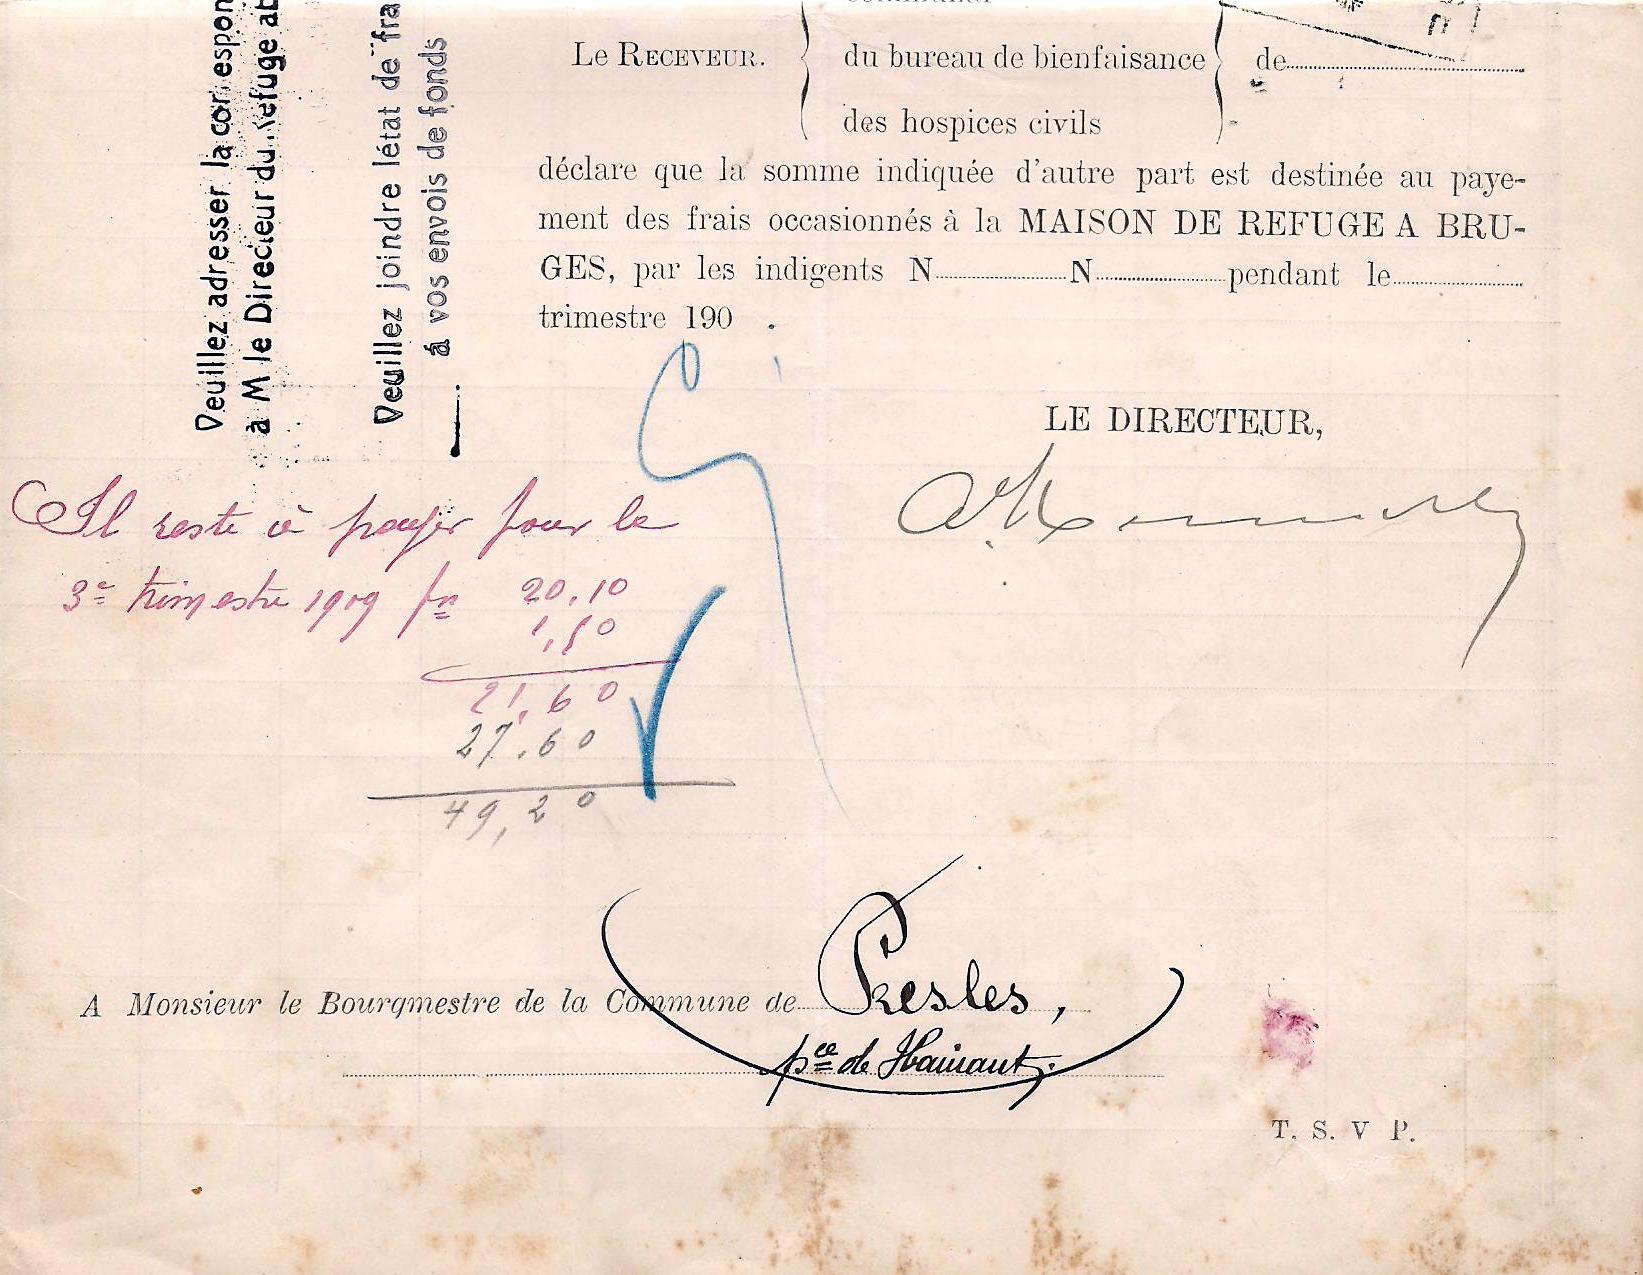 n 1
Le Receveur.
du bureau de bienfaisance
de
des hospices civils
déclare que la somme indiquée d'autre part est destinée au paye-
ment des frais occasionnés à la MAISON DE REFUGE A BRU-
GES, par les indigents N N pendant le
trimestre 190 .
Veuillez adresser la correspon
à M le Directeur du refuge
Veuillez joindre l'état de fra
á vos envois de fonds
LE DIRECTEUR,
Il reste à payer pour le
3e trimestre 1909 fr 20,10
1,50
21,60
27,60
49,20
A Monsieur le Bourgmestre de la Commune de Presles,
pce de Hainaut.
T. S. V P.